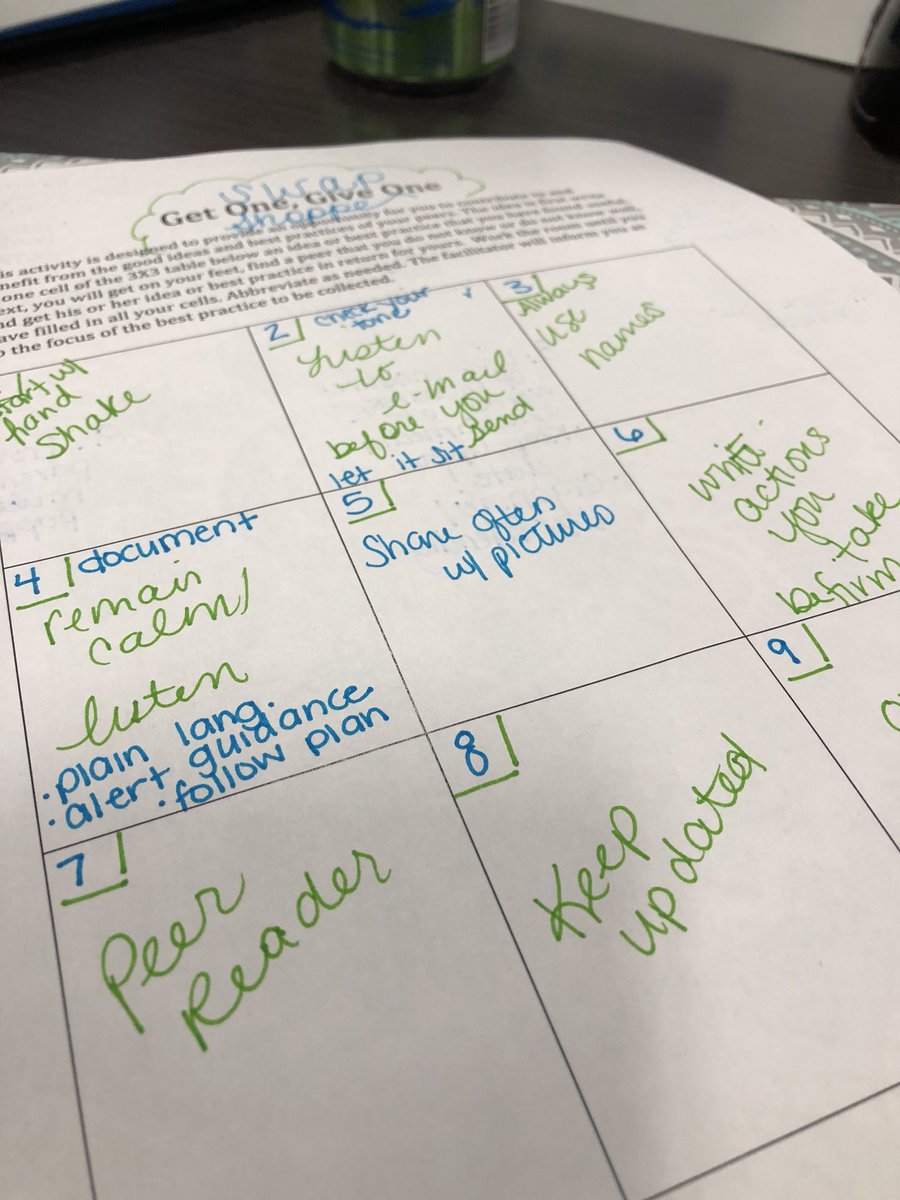 swap
Get One, Give One
shoppe
is activity is designed to provide an opportunity for you to contribute to and
nefit from the good ideas and best practices of your peers. First, write
one cell of the 3X3 table below an idea or best practice that you have
ext, you will get on your feet, find a peer that you do not know or do not know well,
nd get his or her idea or best practice in return for yours. Work the room until you
ave filled in all your cells. Abbreviate as needed. The facilitator will inform you as
o the focus of the best practice to be collected.
start w/
hand
shake
2 check your
tone
Listen
to
e-mail
before you
send
let it sit
3
Always
use
names
4 document
remain
calm/
listen
• plain lang.
• alert guidance
• follow plan
5
Share often
w/ pictures
6
write
actions
you
take
be firm
7
Peer
Reader
8
Keep
updated
9